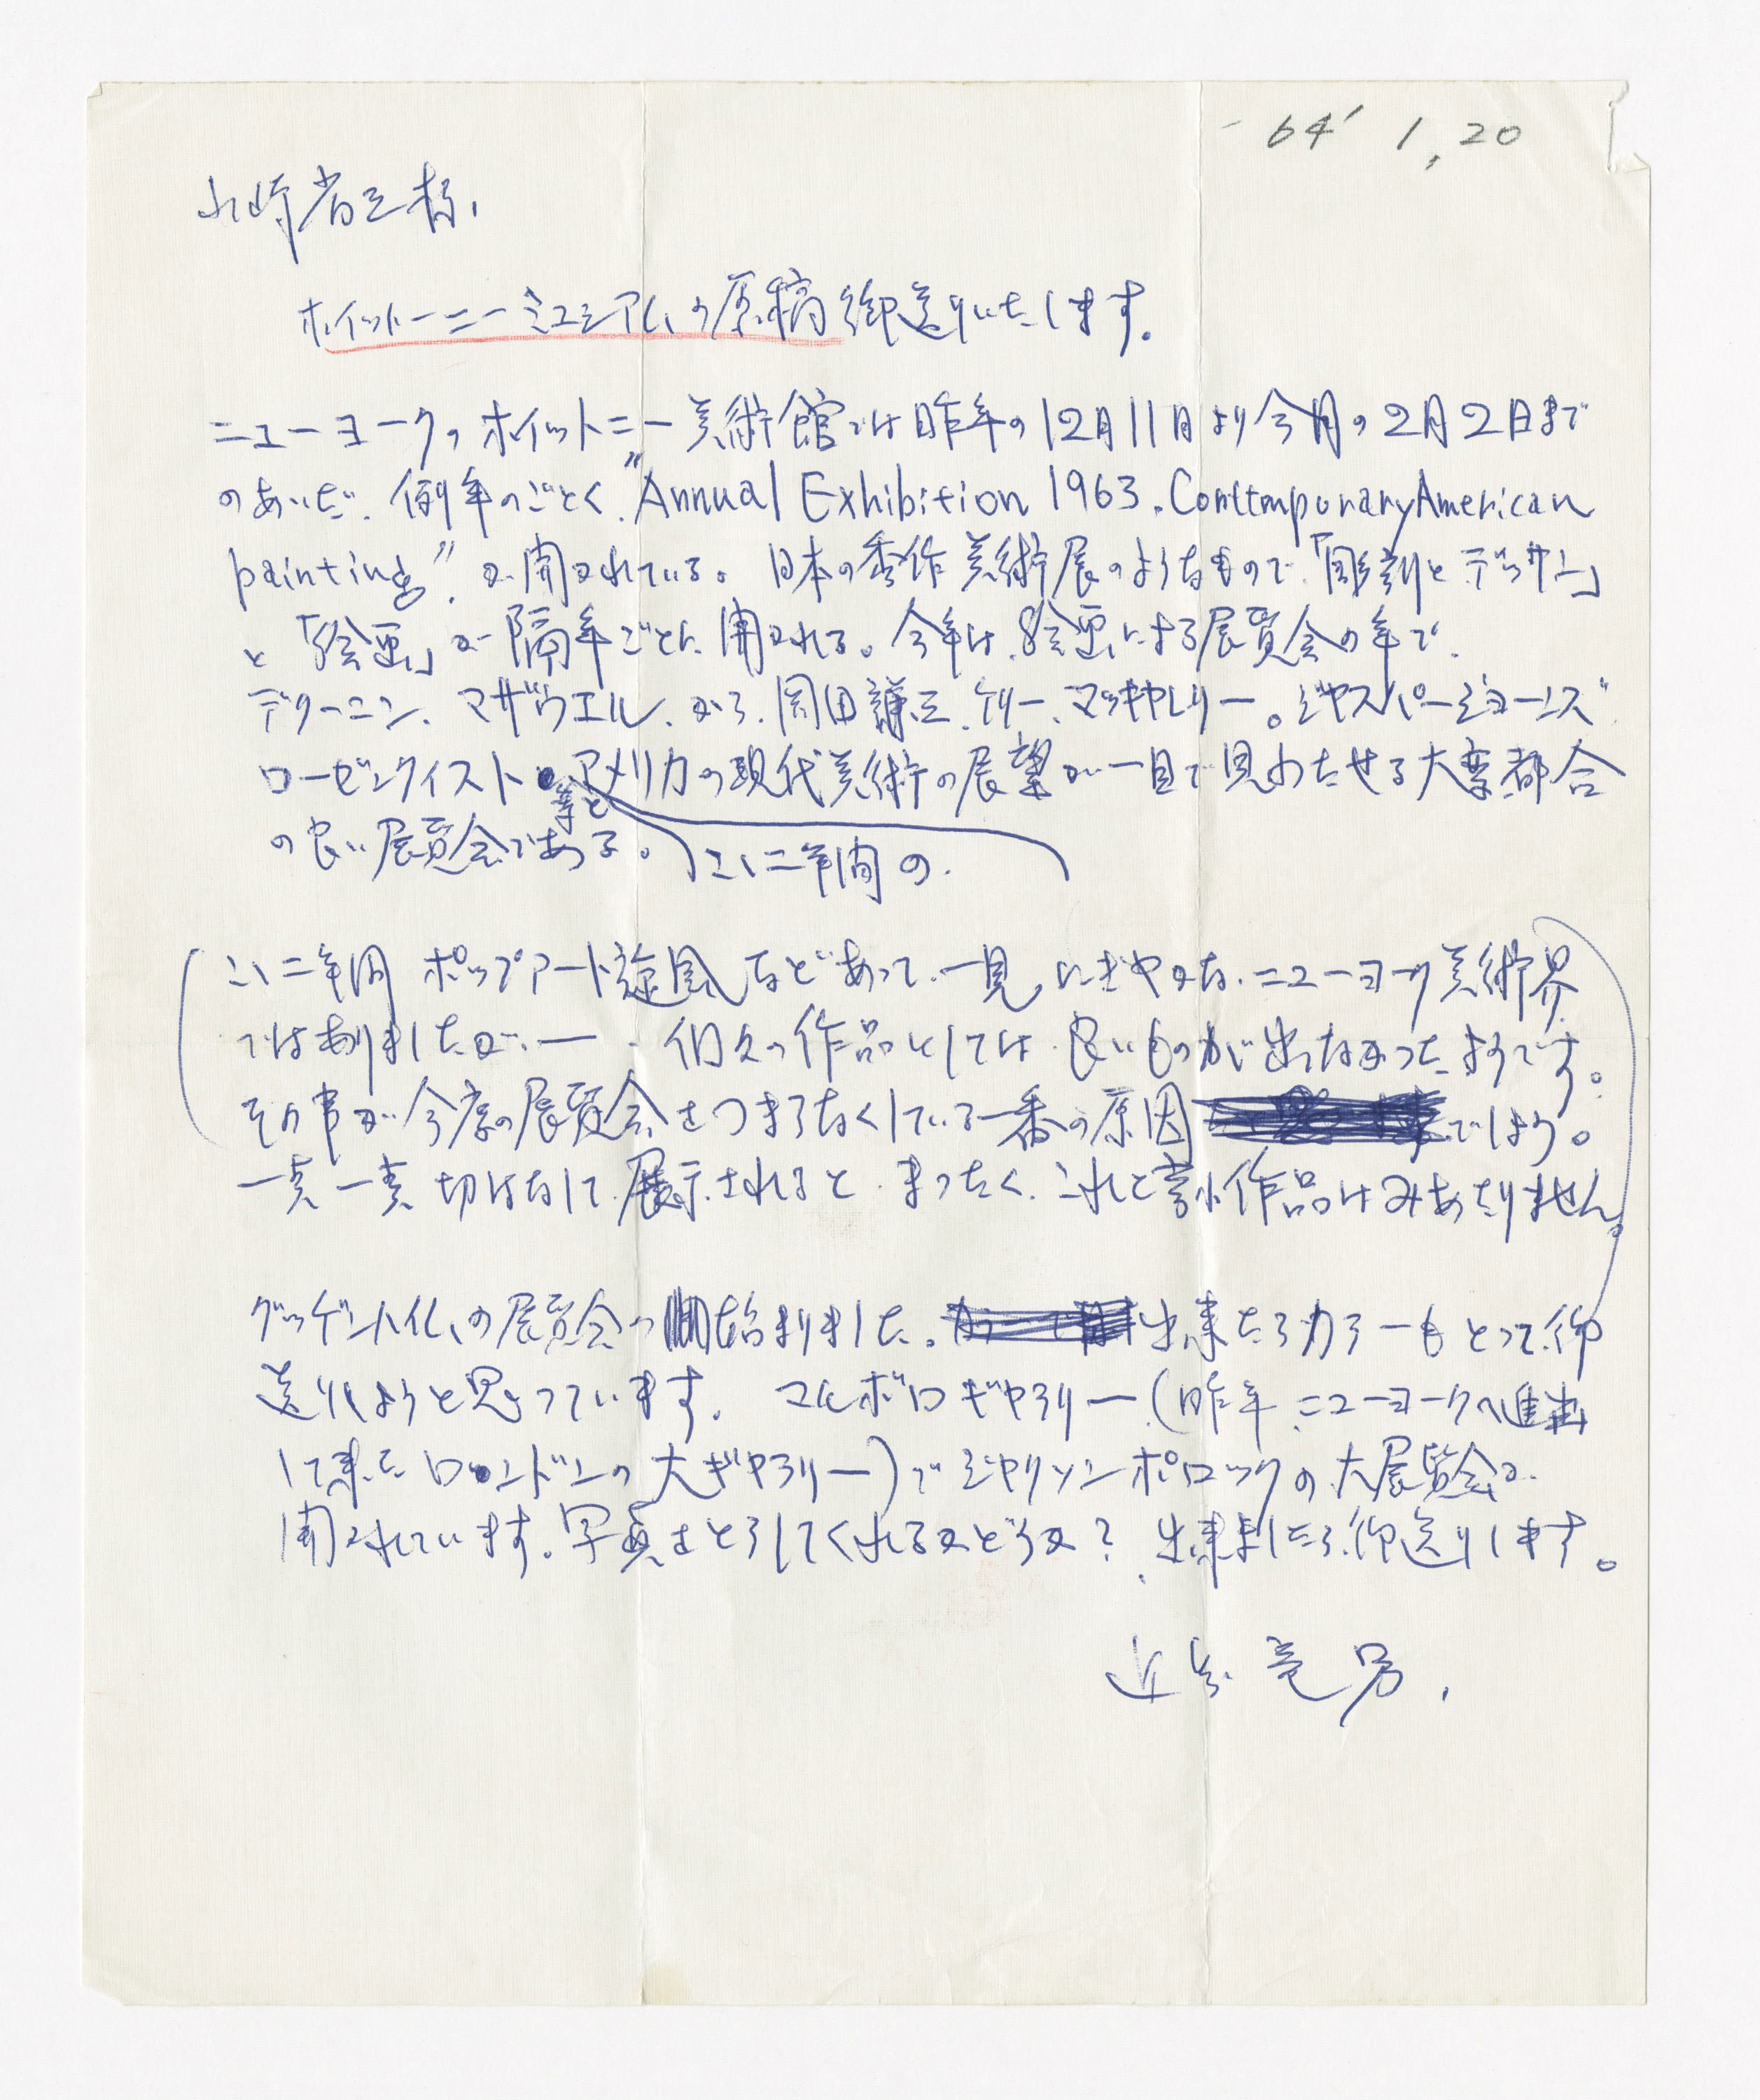 64' 1,20
山崎省三様、
ホイットーニーミュジアムの原稿御送りいたします。
ニューヨークのホイットニー美術館では昨年の12月11日より今月の2月2日まで
のあいだ、例年のごとく、"Annual Exhibition 1963. Conttmporary American
painting"が開かれている。日本の秀作美術展のようなもので、「彫刻とデッサン」
と「絵画」が隔年ごとに開かれる。今年は絵画による展覧会の年で、
デクーニン、マザウエル、から、岡田謙三、ケリー、マッキャレリー。ジャスパージョーンズ
ローゼンクイスト等とアメリカの現代美術の展望が一目で見わたせる大変都合
の良い展覧会である。
この二年間の
この二年間ポップアート旋風などあって、一見にぎやかな、ニューヨーク美術界
ではありましたが、ー 個々の作品としては良いものが出なかったようです。
その事が今度の展覧会をつまらなくしている一番の原因でしょう。
一点一点切はなして展示されると、まったく、これと言い作品はみあたりません。
グッゲンハイムの展覧会が始まりました。出来たらカラーもとって御
送りしようと思っています。マルボロギャラリー(昨年ニューヨークへ進出
して来たロンドンの大ギャラリー)でジャクソンポロックの大展覧会が
開かれています。写真をとらしてくれるかどうか? 出来ましたら御送りします。
近藤竜男、